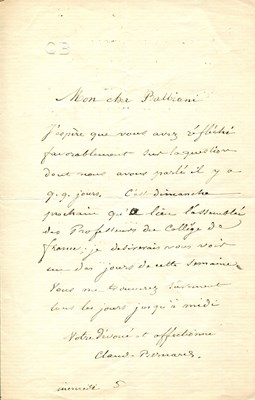 CB
Mon cher Balbiani
J'espère que vous avez réfléchi
favorablement sur la question
dont nous avons parlé il y a
q.q. jours. C'est dimanche
prochain qu'a lieu l'assemblée
des Professeurs du Collège de
france; je desirerais vous voir
un des jours de cette semaine.
Vous me trouverez surement
tous les jours jusqu'à midi
Votre dévoué et affectionné
Claude Bernard.
mercredi 5